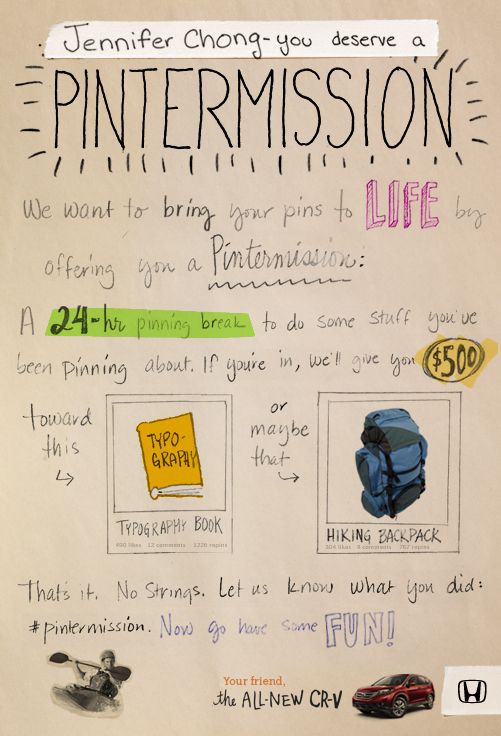 Jennifer Chong - you deserve a
PINTERMISSION
We want to bring your pins to LIFE by
offering you a Pintermission:
A 24-hr pinning break to do some stuff you've
been pinning about. If you're in, we'll give you $500
toward
this
TYPO-
GRAPHY
TYPOGRAPHY BOOK
490 likes 12 comments 1226 repins
or
maybe
that
HIKING BACKPACK
304 likes 8 comments 767 repins
That's it. No Strings. Let us know what you did:
#pintermission. Now go have some FUN!
Your friend,
the ALL-NEW CR-V